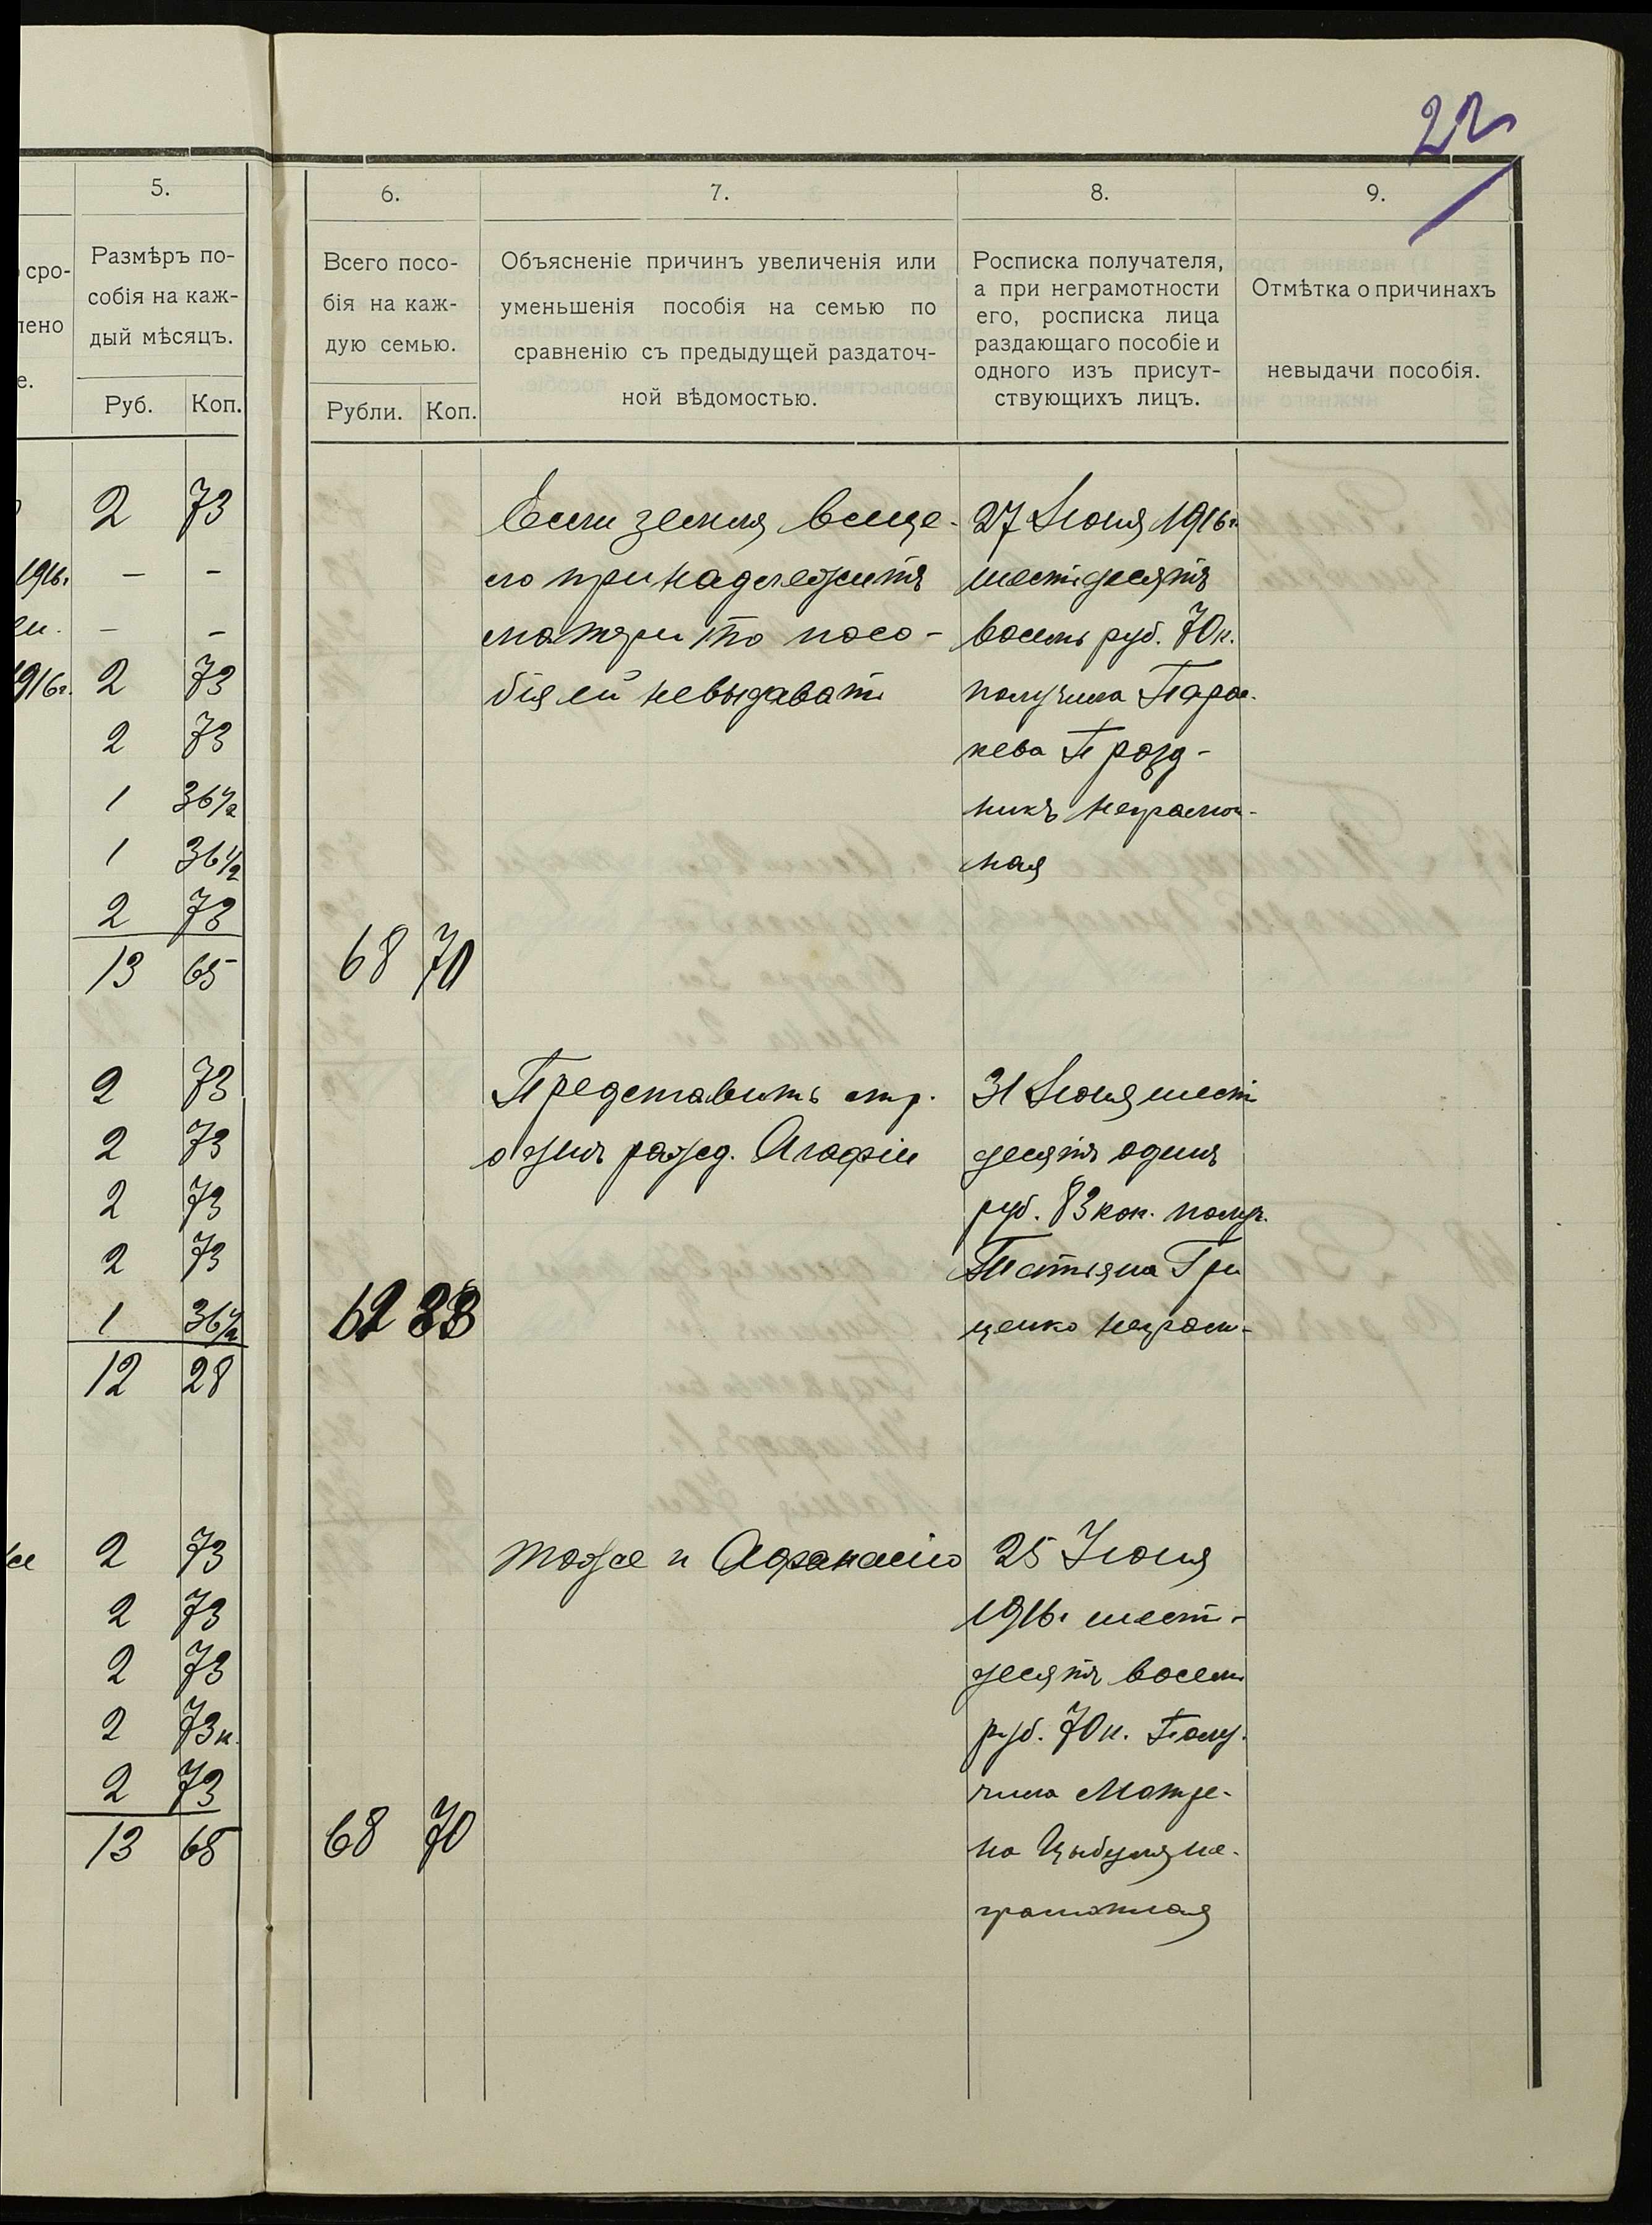 22
5.
6.
7.
8.
9.
сро-
лено
е.
Размѣръ по-
собія на каж-
дый мѣсяцъ.
Руб. Коп.
Всего посо-
бія на каж-
дую семью.
Рубли. Коп.
Объясненіе причинъ увеличенія или
уменьшенія пособія на семью по
сравненію съ предыдущей раздаточ-
ной вѣдомостью.
Росписка получателя,
а при неграмотности
его, росписка лица
раздающаго пособіе и
одного изъ присут-
ствующихъ лицъ.
Отмѣтка о причинахъ
невыдачи пособія.
2 73
1916г. — -
— -
1916г. 2 73
2 73
1 36½
1 36½
2 73
13 65
68 70
Если земля всеце-
ло принадлежитъ
матери то посо-
бія ей невыдавать
27 Іюня 1916г.
шестьдесятъ
восемь руб. 70к.
получила Парас-
кева Прозд-
никъ неграмот-
ная
2 73
2 73
2 73
2 73
1 36½
12 28
62 83
Представить
рожд. Агафіи
31 Іюня шесть
десятъ одинъ
руб. 83 коп. получ.
Татіяна Гри
ценко неграм-
2 73
2 73
2 73
2 73к.
2 73
13 65
68 70
тоже и Афанасію
25 Іюня
1916г шесть-
десятъ восемь
руб. 70к. Полу-
чила Матре-
на Цыбуля не-
грамотная